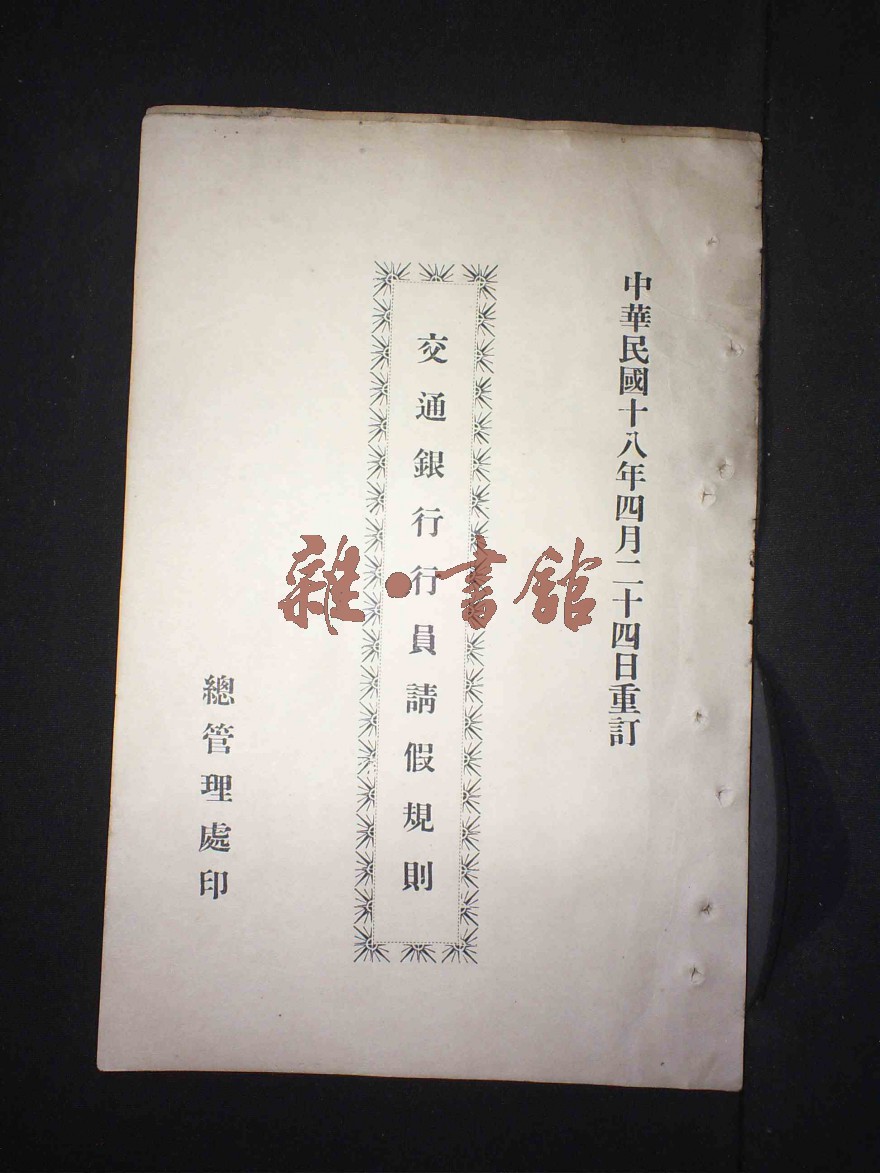 中華民國十八年四月二十四日重訂
交通銀行行員請假規則
總管理處印
雜·書館